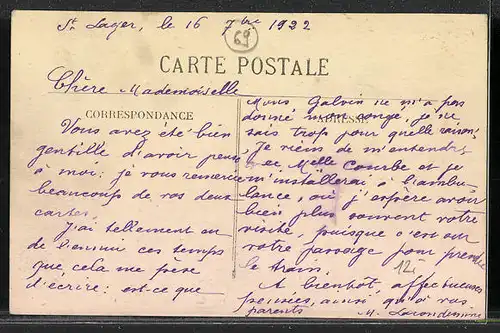 St Lager, le 16 7bre 1922
69
CARTE POSTALE
Chère Mademoiselle
CORRESPONDANCE
Vous avez été bien
gentille d'avoir pensé
à moi; je vous remercie
beaucoup de vos deux
cartes.
J'ai tellement eu
de l'ennui ces temps
que, cela me pèse
d'écrire: est-ce que
ADRESSE
Mons Galvin ne m'a pas
donné mon congé, je ne
sais trop pour quelle raison.
Je viens de m'entendre
avec Melle Courbe et je
m'installerai à l'ambu-
lance, où j'espère avoir
bien plus souvent votre
visite, puisque c'est sur
votre passage pour prendre
le train.
A bientôt, affectueuses
pensées, ainsi qu'à vos
parents
M.
12